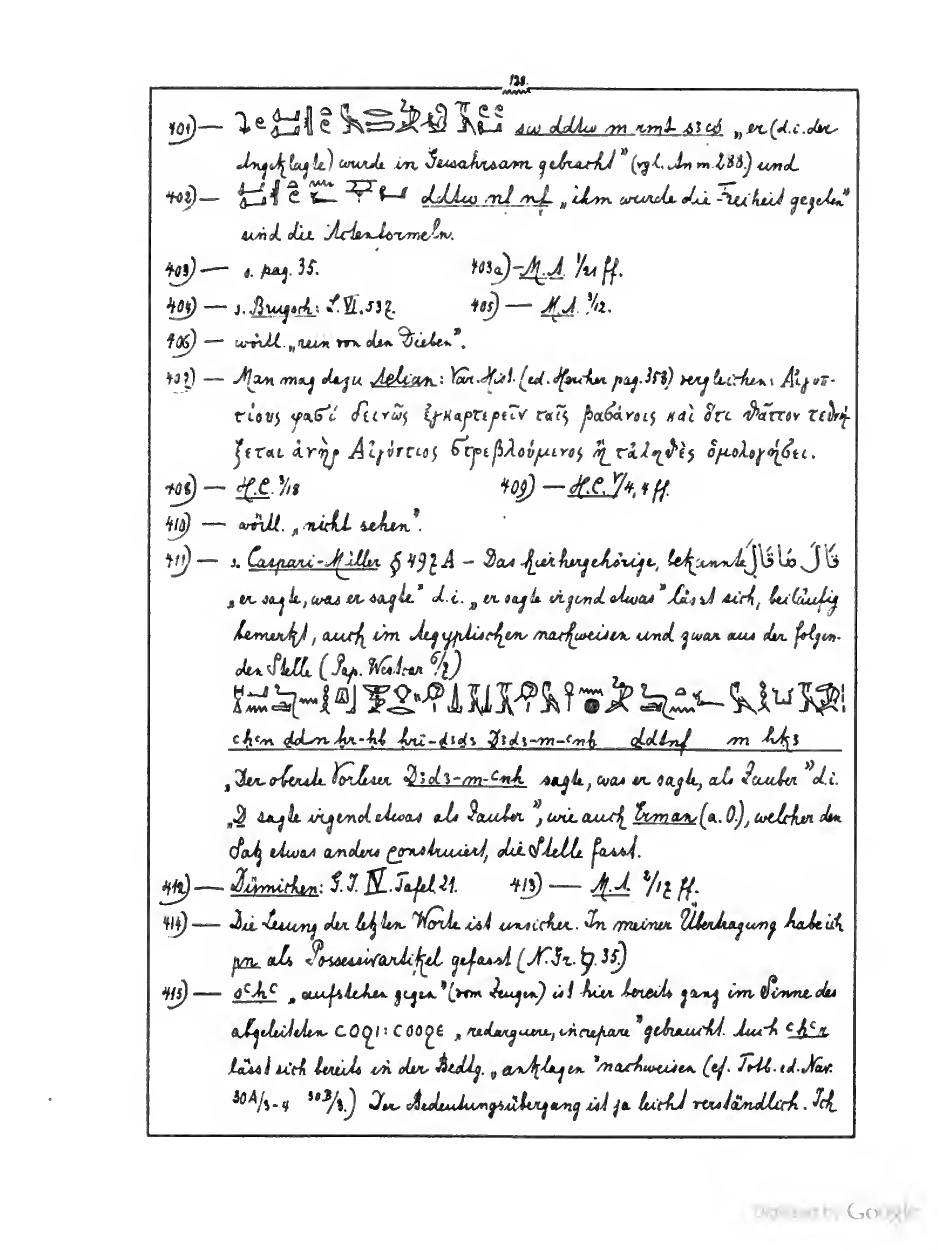 128.
401) — sw ddtw m rmt s3w „er (d.i. der
Angeklagte) wurde in Gewahrsam gebracht" (vgl. Anm. 288.) und
402) — ddtw nf nf „ihm wurde die Freiheit gegeben"
sind die Actenformeln.
403) — s. pag. 35. 403a) — M.A. 1/21 ff.
404) — s. Brugsch: L. VI. 537. 405) — M.A. 3/12.
406) — wörtl. „rein von den Dieben".
407) — Man mag dazu Aelian: Var. Hist. (ed. Hercher pag. 358) vergleichen: Αἰγυπ-
τίους φασὶ δεινῶς ἐγκαρτερεῖν ταῖς βασάνοις καὶ ὅτι θᾶττον τεθνή-
ξεται ἀνὴρ Αἰγύπτιος στρεβλούμενος ἢ τἀληθὲς ὁμολογήσει.
408) — H.C. 3/18 409) — H.C. V/4,4 ff.
410) — wörtl. „nicht sehen".
411) — s. Caspari-Müller § 497 A – Das hierhergehörige, bekannte قال ما قال
„er sagte, was er sagte" d.i. „er sagte irgend etwas" lässt sich, beiläufig
bemerkt, auch im Aegyptischen nachweisen und zwar aus der folgen-
den Stelle (Pap. Westcar 6/7)
chcn ddn hr-hb hri-d3d3 D3d3-m-cnh ddtnf m hk3
„Der oberste Vorleser D3d3-m-cnh sagte, was er sagte, als Zauber" d.i.
„D sagte irgend etwas als Zauber", wie auch Erman (a. O.), welcher den
Satz etwas anders construiert, die Stelle fasst.
412) — Dümichen: G.I. IV. Tafel 21. 413) — M.A. 2/17 ff.
414) — Die Lesung der letzten Worte ist unsicher. In meiner Übertragung habe ich
pn als Possessivartikel gefasst (N. Gr. § 35)
415) — schc „aufstehen gegen" (vom Zeugen) ist hier bereits ganz im Sinne des
abgeleiteten ⲥⲟϩⲓ : ⲥⲟⲟϩⲉ „redarguere, increpare" gebraucht. Auch chcn
lässt sich bereits in der Bedtg. „anklagen" nachweisen (cf. Totb. ed. Nav.
30A/3-4 30B/3.) Der Bedeutungsübergang ist ja leicht verständlich. Ich
Digitized by Google